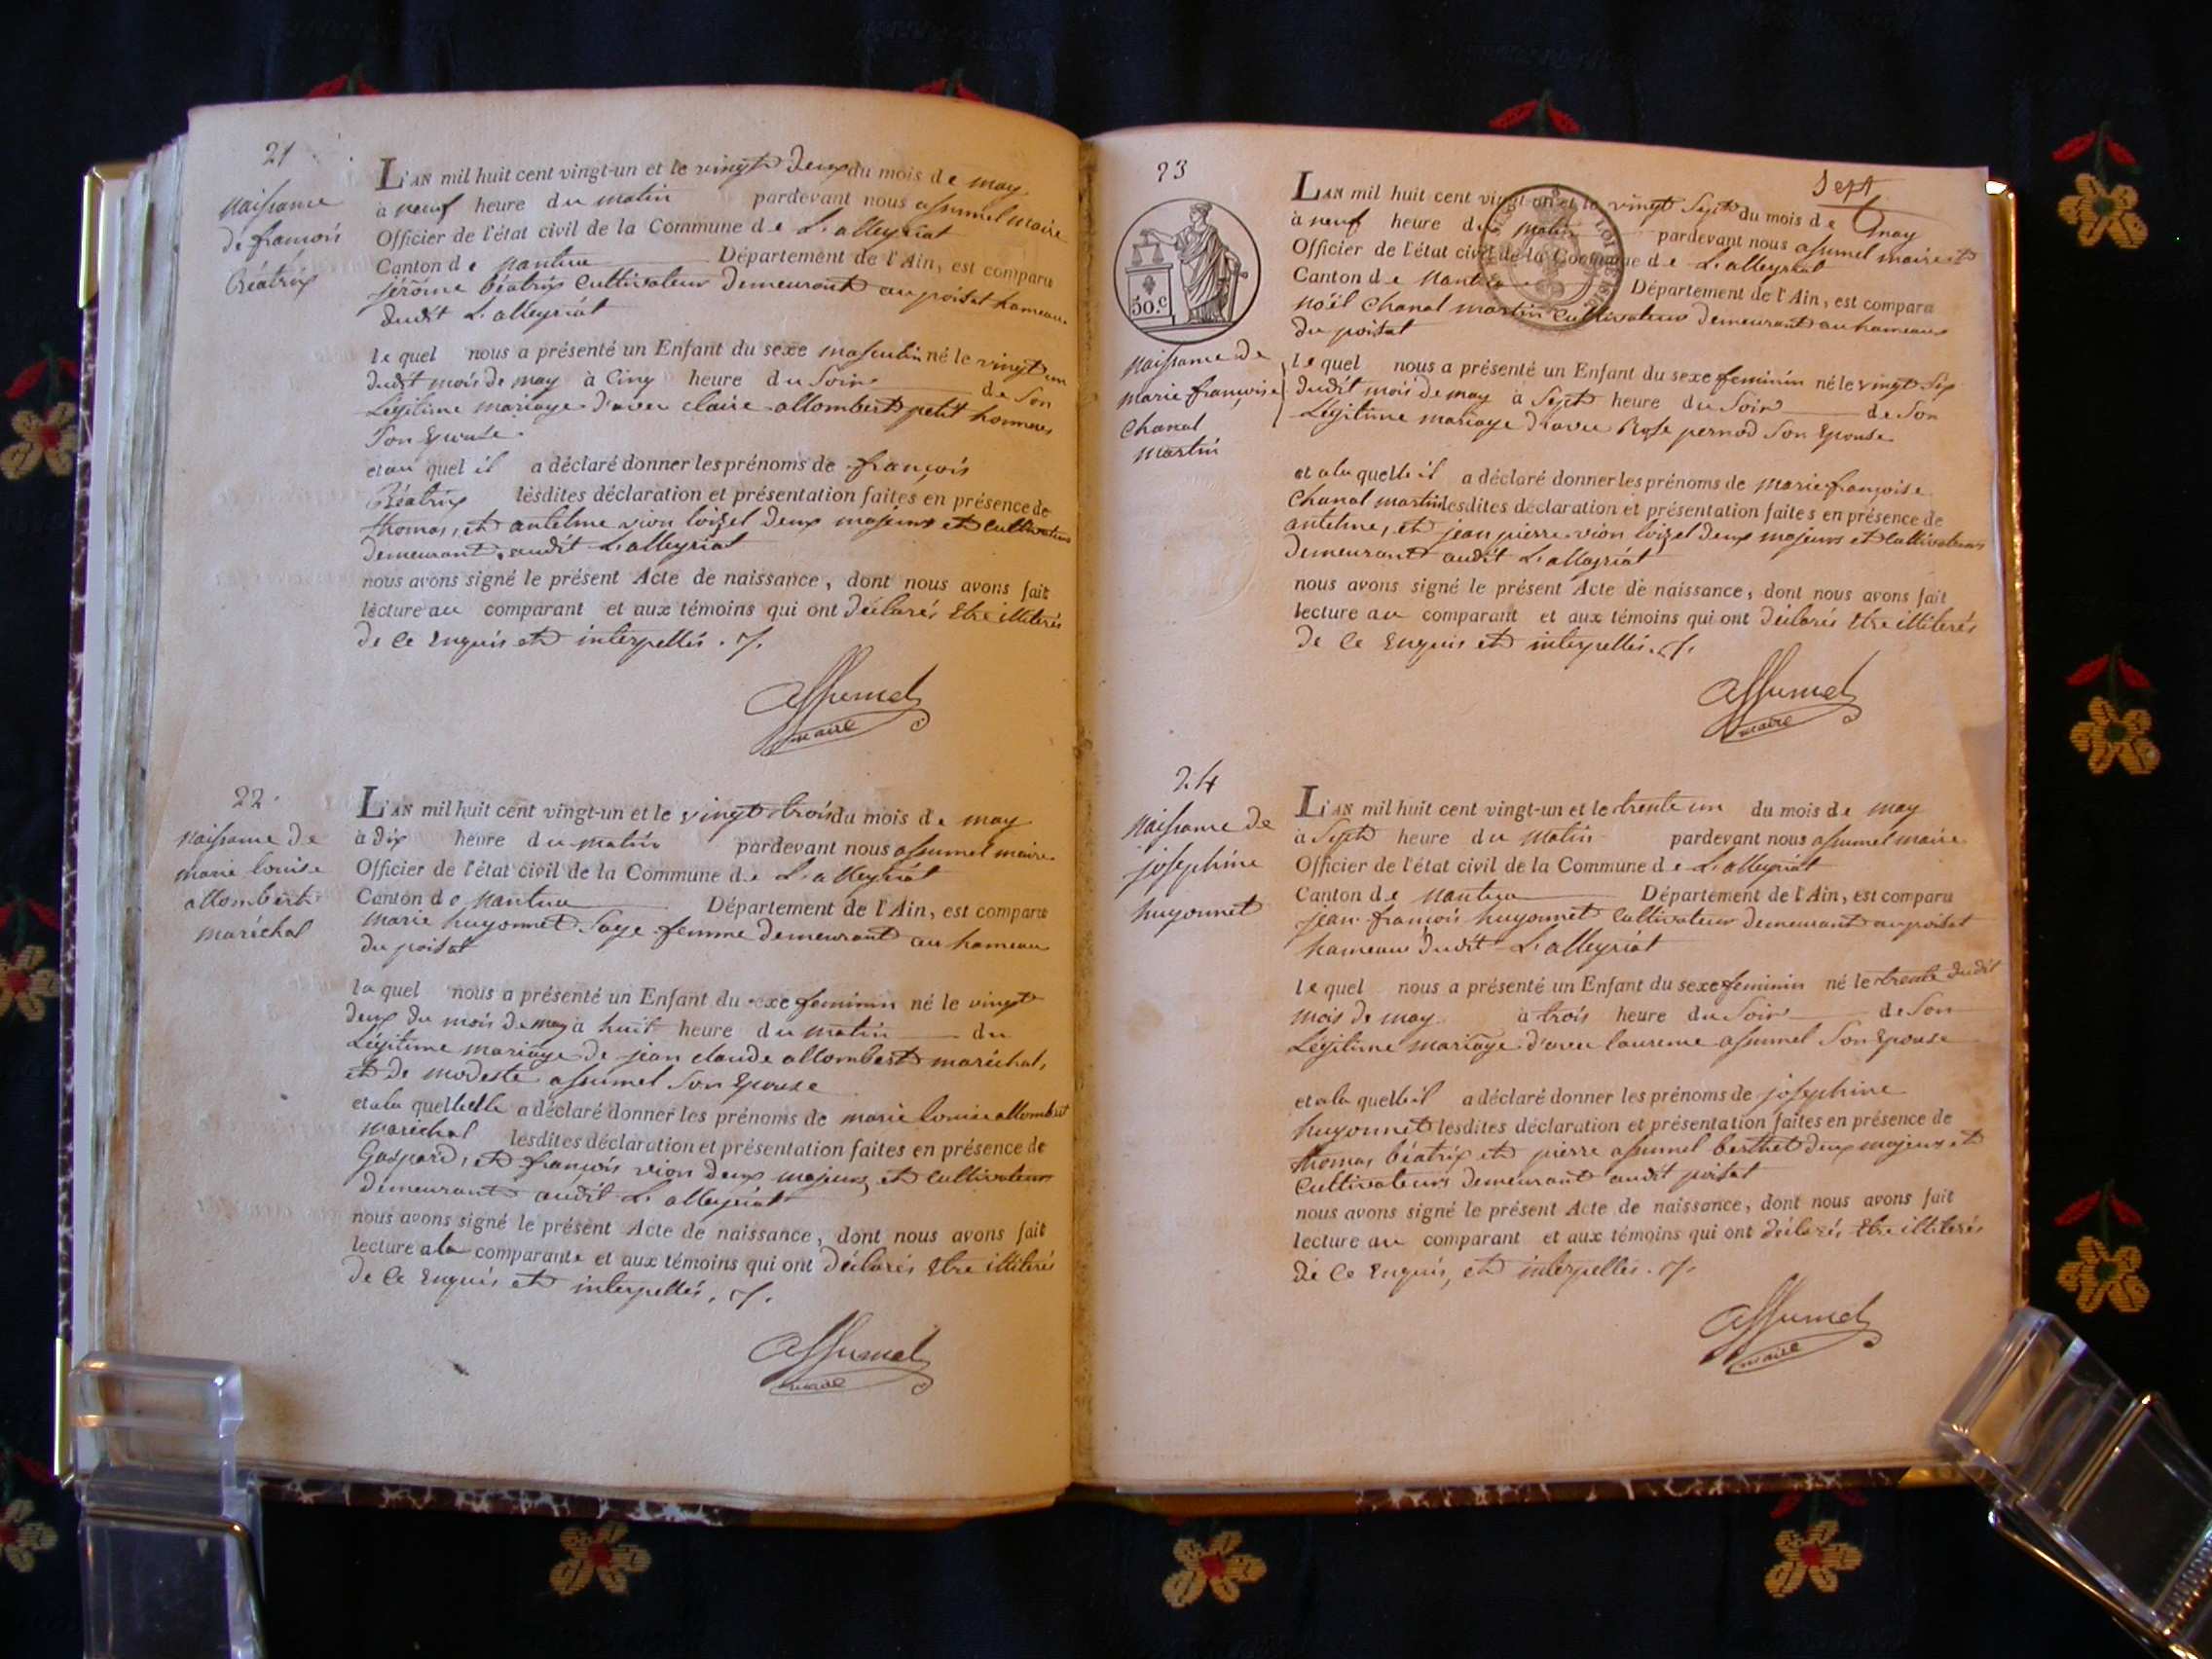 21
Naissance
de françois
Béatrix
L'AN mil huit cent vingt-un et le vingt deux du mois de may
à neuf heure du matin pardevant nous assumel maire
Officier de l'état civil de la Commune de L'alleyriat
Canton de Nantua Département de l'Ain, est comparu
jérôme béatrix Cultivateur Demeurant au poisat hameau
dudit L'alleyriat
lequel nous a présenté un Enfant du sexe masculin né le vingt un
dudit mois de may à Cinq heure du Soir de Son
Légitime mariage d'avec claire allombert petit hommes
Son Epouse
et au quel il a déclaré donner les prénoms de françois
Béatrix lesdites déclaration et présentation faites en présence de
thomas, et antelme vion loizel deux majeurs et cultivateurs
demeurant audit L'alleyriat
nous avons signé le présent Acte de naissance, dont nous avons fait
lecture au comparant et aux témoins qui ont déclarés Etre illiterés
de Ce Enquis et interpellés ./.
assumel
maire
22
Naissance de
marie louise
allombert
maréchal
L'AN mil huit cent vingt-un et le vingt trois du mois de may
à dix heure du matin pardevant nous assumel maire
Officier de l'état civil de la Commune de L'alleyriat
Canton de Nantua Département de l'Ain, est comparue
marie huyonnet Sage femme demeurant au hameau
du poisat
laquel nous a présenté un Enfant du sexe feminin né le vingt
deux du mois de may à huit heure du matin du
Légitime mariage de jean claude allombert maréchal,
et de modeste assumel Son Epouse
et a la quelle elle a déclaré donner les prénoms de marie louise allombert
maréchal lesdites déclaration et présentation faites en présence de
Gaspard, et françois vion deux majeurs, et cultivateurs
demeurant audit L'alleyriat
nous avons signé le présent Acte de naissance, dont nous avons fait
lecture a la comparante et aux témoins qui ont déclarés Etre illiterés
de Ce Enquis et interpellés, ./.
assumel
maire
23
Sept
50.c
LOI DE 1816
Naissance de
marie françoise
Chanal
martin
L'AN mil huit cent vingt-un et le vingt Sept du mois de may
à neuf heure du matin pardevant nous assumel maire
Officier de l'état civil de la Commune de L'alleyriat
Canton de Nantua Département de l'Ain, est comparu
Noël Chanal martin Cultivateur demeurant au hameau
du poisat
lequel nous a présenté un Enfant du sexe feminin né le vingt Six
dudit mois de may à Sept heure du Soir de Son
Légitime mariage d'avec Rose pernod Son Epouse
et a la quelle il a déclaré donner les prénoms de marie françoise
Chanal martin lesdites déclaration et présentation faites en présence de
antelme, et jean pierre vion loizel deux majeurs et Cultivateurs
demeurant audit L'alleyriat
nous avons signé le présent Acte de naissance, dont nous avons fait
lecture au comparant et aux témoins qui ont déclarés Etre illiterés
de Ce Enquis et interpellés ./.
assumel
maire
24
Naissance de
josephine
huyonnet
L'AN mil huit cent vingt-un et le trente un du mois de may
à Sept heure du matin pardevant nous assumel maire
Officier de l'état civil de la Commune de L'alleyriat
Canton de Nantua Département de l'Ain, est comparu
jean françois huyonnet Cultivateur demeurant au poisat
hameau dudit L'alleyriat
lequel nous a présenté un Enfant du sexe feminin né le trente dudit
mois de may à trois heure du Soir de Son
Légitime mariage d'avec laurence assumel Son Epouse
et a la quelle il a déclaré donner les prénoms de josephine
huyonnet lesdites déclaration et présentation faites en présence de
thomas béatrix et pierre assumel berthet deux majeurs et
Cultivateurs demeurant audit poisat
nous avons signé le présent Acte de naissance, dont nous avons fait
lecture au comparant et aux témoins qui ont déclarés Etre illiterés
de Ce Enquis, et interpellés ./.
assumel
maire